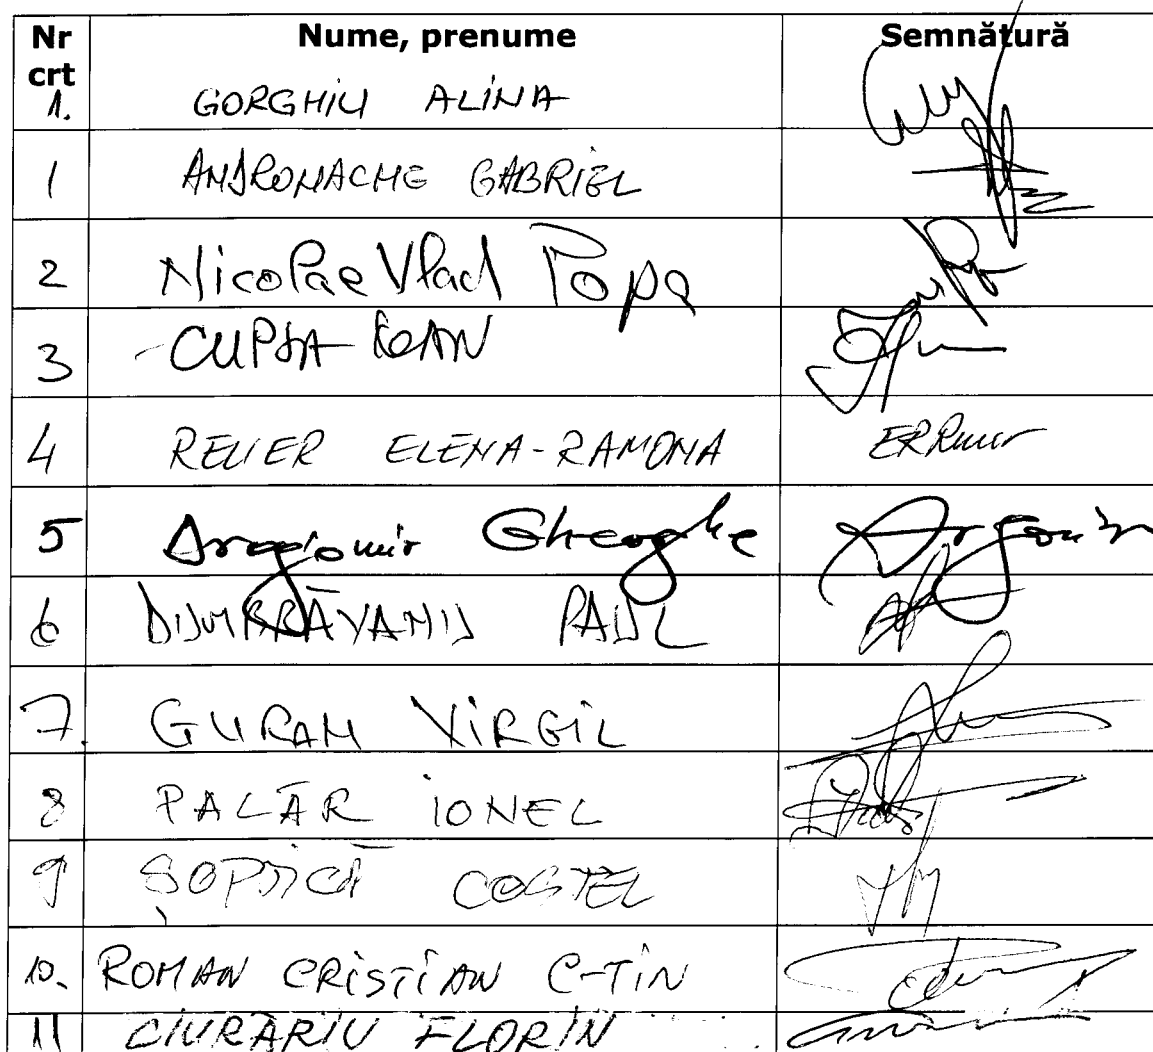 Nr crt Nume, prenume Semnătură
1. GORGHIU ALINA
1 ANDROMACHE GABRIEL
2 Nicolae Vlad Popa
3 CUPŞA IOAN
4 RELIER ELENA-RAMONA ERR
5 Dragomir Gheorghe
6 DUMBRĂVANU PAUL
7. GURAN VIRGIL
8 PALĂR IONEL
9 ȘOPTICĂ COSTEL
10. ROMAN CRISTIAN C-TIN
11 CIURARIU FLORIN